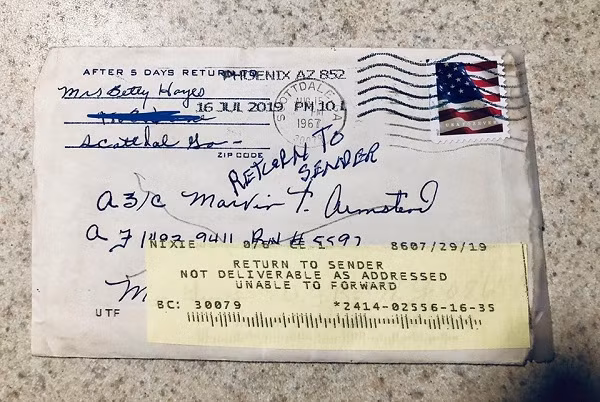 AFTER 5 DAYS RETURN TO
PHOENIX AZ 852
Mrs Betty Hayes
16 JUL 2019 PM 10 L
Scottdal Ga -
ZIP CODE
SCOTTDALE, GA
1967
RETURN TO
SENDER
A 3/c Marvin T. Armstead
NIXIE
8607/29/19
RETURN TO SENDER
NOT DELIVERABLE AS ADDRESSED
UNABLE TO FORWARD
BC: 30079 *2414-02556-16-35
UTF